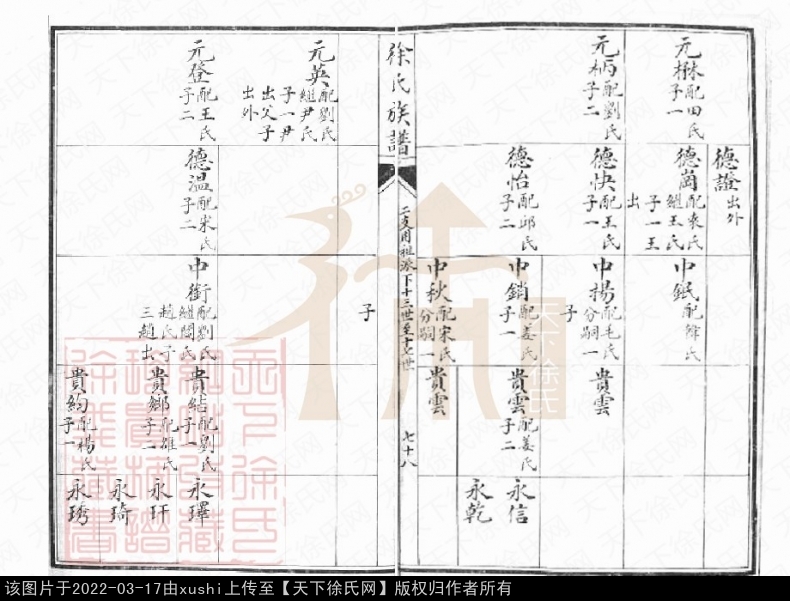 德證出外
元楙配田氏子一
德崗配袁氏繼王氏子一王出
中鈱配韓氏
元柄配劉氏子二
德快配王氏子一
中揚配毛氏分嗣一子
貴雲
德怡配邱氏子二
中銷配姜氏子一
貴雲配姜氏子二
永信
永乾
中秋配宋氏分嗣一子
貴雲
徐氏族譜
二支用祖派下十三世至十七世
七十八
元英配劉氏繼尹氏子一尹出父子出外
元登配王氏子二
德温配宋氏子二
中衛配劉氏繼閻氏趙氏子三趙出
貴結配劉氏子一
永琿
貴鄉配雒氏子二
永玕
永琦
貴約配楊氏子一
永琇
天下徐氏
该图片于2022-03-17由xushi上传至【天下徐氏网】版权归作者所有